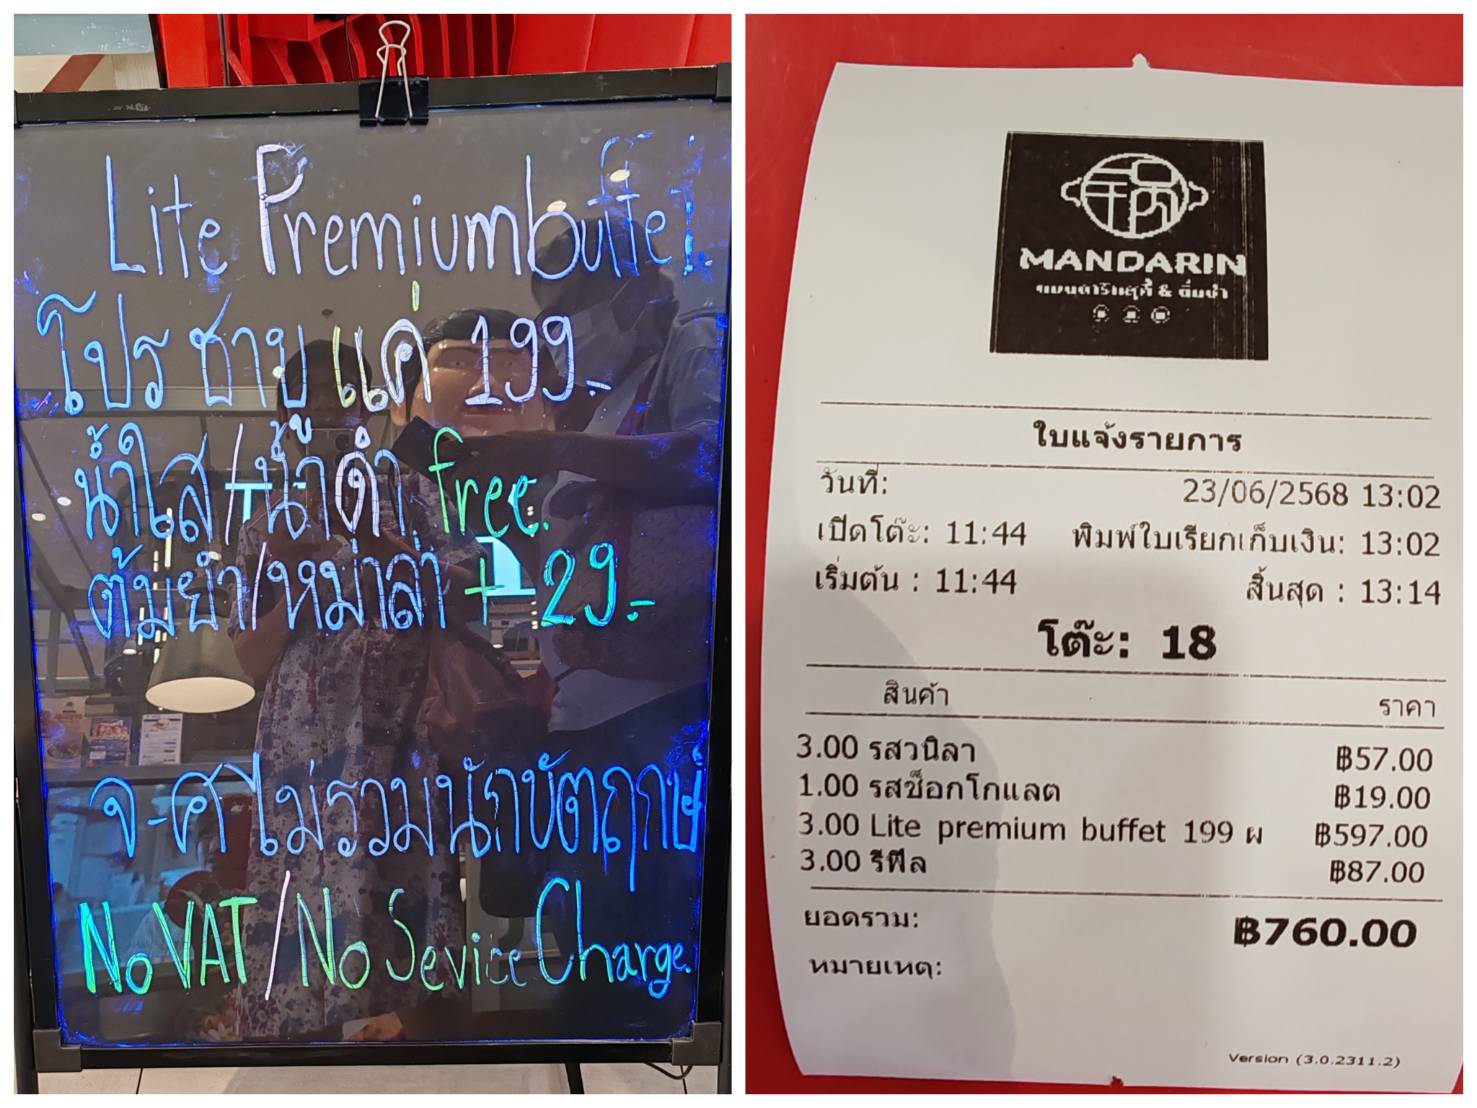 Lite Premium buffet
โปร ชาบู แค่ 199.-
น้ำใส/น้ำดำ free.
ต้มยำ/หม่าล่า + 29.-
จ-ศ ไม่รวมนักขัตฤกษ์
No VAT/No Sevice Charge.
MANDARIN
แมนดารินสุกี้ & ติ่มซำ
ใบแจ้งรายการ
วันที่: 23/06/2568 13:02
เปิดโต๊ะ: 11:44 พิมพ์ใบเรียกเก็บเงิน: 13:02
เริ่มต้น : 11:44 สิ้นสุด : 13:14
โต๊ะ: 18
สินค้า ราคา
3.00 รสวนิลา ฿57.00
1.00 รสช็อกโกแลต ฿19.00
3.00 Lite premium buffet 199 ผ ฿597.00
3.00 รีฟีล ฿87.00
ยอดรวม: ฿760.00
หมายเหตุ:
Version (3.0.2311.2)